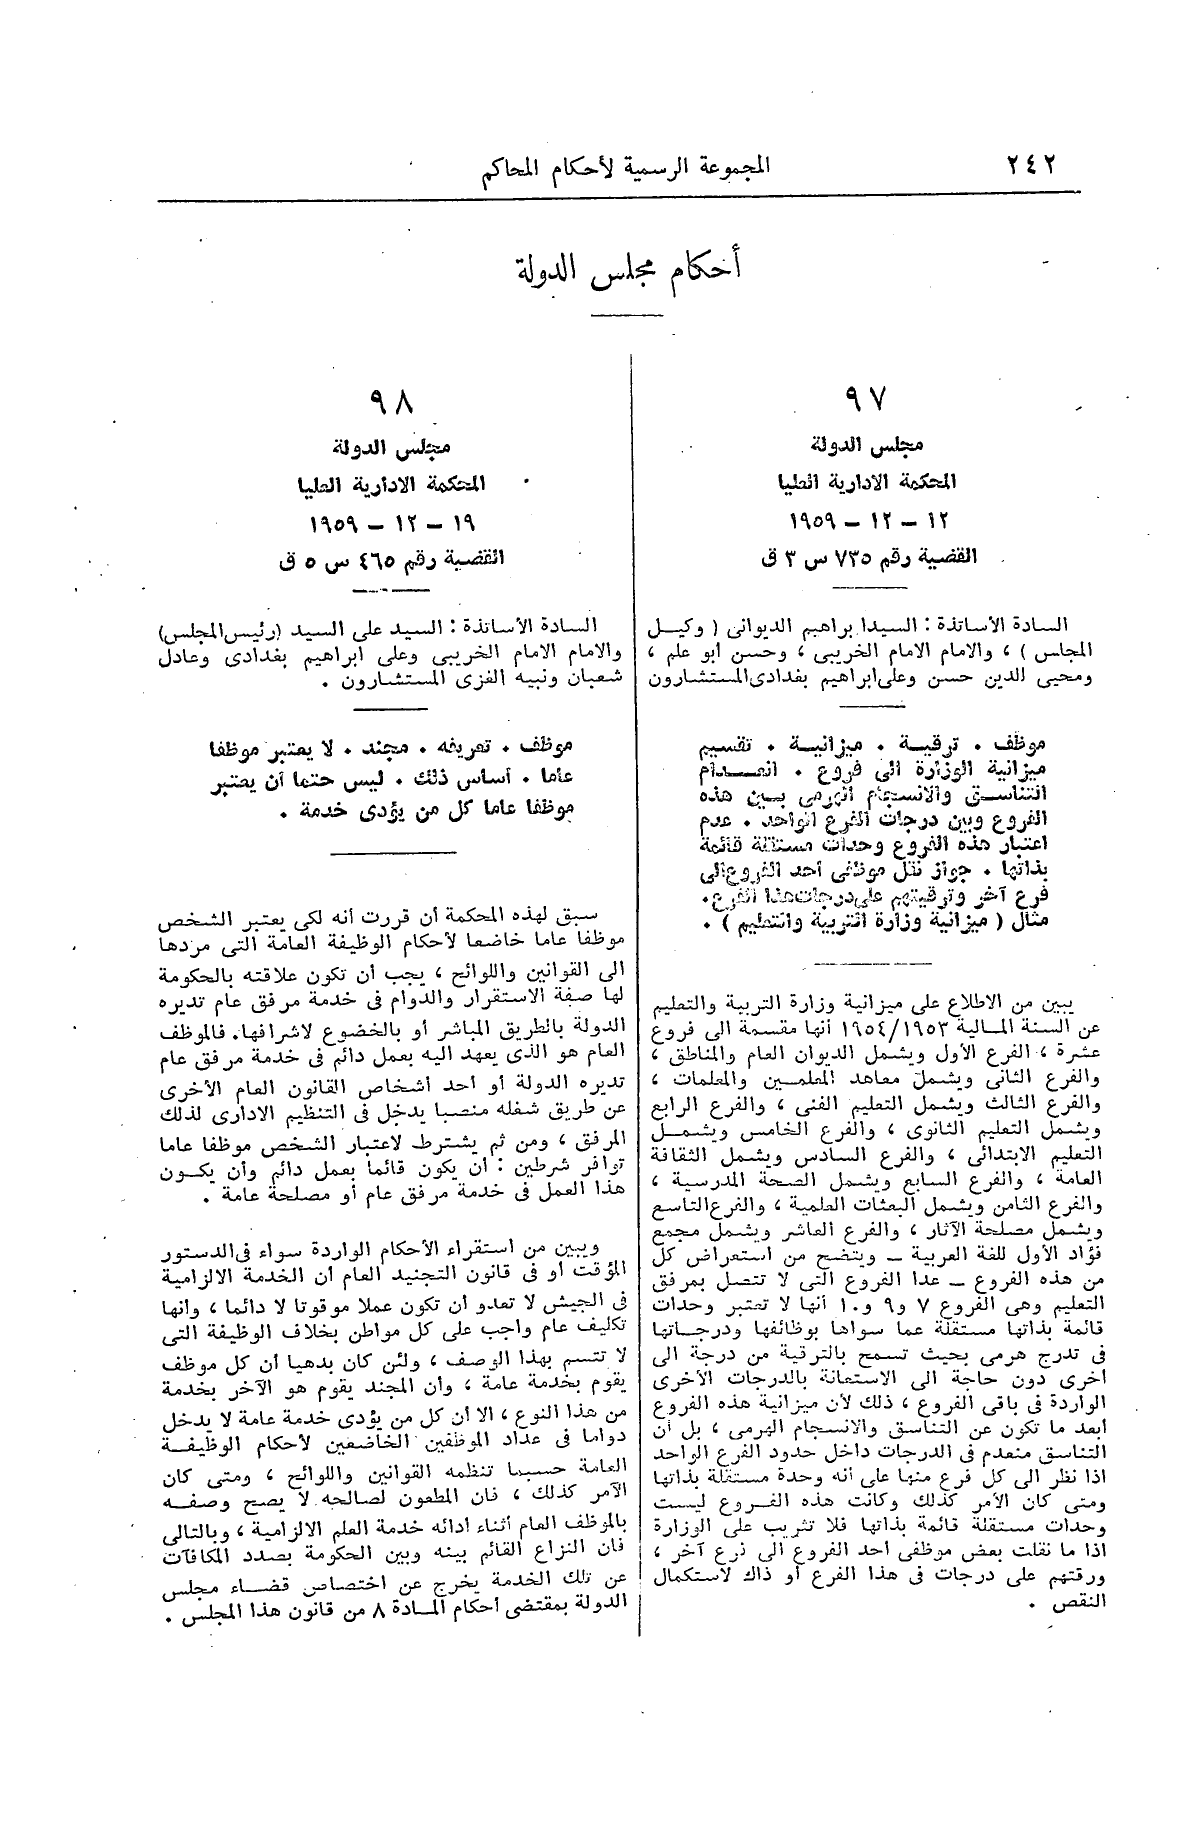 ٢٤٢
المجموعة الرسمية لأحكام المحاكم
أحكام مجلس الدولة
٩٧
مجلس الدولة
المحكمة الادارية العليا
١٢ – ١٢ – ١٩٥٩
القضية رقم ٧٣٥ س ٣ ق
السادة الأساتذة : السيد ابراهيم الديوانى ( وكيل
المجلس ) ، والامام الامام الخريبى ، وحسن أبو علم ،
ومحيى الدين حسن وعلى ابراهيم بغدادى المستشارون
موظف . ترقية . ميزانية . تقسيم
ميزانية الوزارة الى فروع . انعدام
التناسق والانسجام الهرمى بين هذه
الفروع وبين درجات الفرع الواحد . عدم
اعتبار هذه الفروع وحدات مستقلة قائمة
بذاتها . جواز نقل موظفى أحد الفروع الى
فرع آخر وترقيتهم على درجات هذا الفرع .
مثال ( ميزانية وزارة التربية والتعليم ) .
يبين من الاطلاع على ميزانية وزارة التربية والتعليم
عن السنة المالية ١٩٥٣/١٩٥٤ أنها مقسمة الى فروع
عشرة ، الفرع الأول ويشمل الديوان العام والمناطق ،
والفرع الثانى ويشمل معاهد المعلمين والمعلمات ،
والفرع الثالث ويشمل التعليم الفنى ، والفرع الرابع
ويشمل التعليم الثانوى ، والفرع الخامس ويشمل
التعليم الابتدائى ، والفرع السادس ويشمل الثقافة
العامة ، والفرع السابع ويشمل الصحة المدرسية ،
والفرع الثامن ويشمل البعثات العلمية ، والفرع التاسع
ويشمل مصلحة الآثار ، والفرع العاشر ويشمل مجمع
فؤاد الأول للغة العربية – ويتضح من استعراض كل
من هذه الفروع – عدا الفروع التى لا تتصل بمرفق
التعليم وهى الفروع ٧ و٩ و١٠ أنها لا تعتبر وحدات
قائمة بذاتها مستقلة عما سواها بوظائفها ودرجاتها
فى تدرج هرمى بحيث تسمح بالترقية من درجة الى
أخرى دون حاجة الى الاستعانة بالدرجات الأخرى
الواردة فى باقى الفروع ، ذلك لأن ميزانية هذه الفروع
أبعد ما تكون عن التناسق والانسجام الهرمى ، بل أن
التناسق منعدم فى الدرجات داخل حدود الفرع الواحد
اذا نظر الى كل فرع منها على أنه وحدة مستقلة بذاتها
ومتى كان الأمر كذلك وكانت هذه الفروع ليست
وحدات مستقلة قائمة بذاتها فلا تثريب على الوزارة
اذا ما نقلت بعض موظفى أحد الفروع الى فرع آخر ،
ورقتهم على درجات فى هذا الفرع أو ذاك لاستكمال
النقص .
٩٨
مجلس الدولة
المحكمة الادارية العليا
١٩ – ١٢ – ١٩٥٩
القضية رقم ٤٦٥ س ٥ ق
السادة الأساتذة : السيد على السيد (رئيس المجلس)
والامام الامام الخريبى وعلى ابراهيم بغدادى وعادل
شعبان ونبيه الفزى المستشارون .
موظف . تعريفه . مجند . لا يعتبر موظفا
عاما . أساس ذلك . ليس حتما أن يعتبر
موظفا عاما كل من يؤدى خدمة .
سبق لهذه المحكمة أن قررت أنه لكى يعتبر الشخص
موظفا عاما خاضعا لأحكام الوظيفة العامة التى مردها
الى القوانين واللوائح ، يجب أن تكون علاقته بالحكومة
لها صفة الاستقرار والدوام فى خدمة مرفق عام تديره
الدولة بالطريق المباشر أو بالخضوع لاشرافها. فالموظف
العام هو الذى يعهد اليه بعمل دائم فى خدمة مرفق عام
تديره الدولة أو أحد أشخاص القانون العام الأخرى
عن طريق شغله منصبا يدخل فى التنظيم الادارى لذلك
المرفق ، ومن ثم يشترط لاعتبار الشخص موظفا عاما
توافر شرطين : أن يكون قائما بعمل دائم وأن يكون
هذا العمل فى خدمة مرفق عام أو مصلحة عامة .
ويبين من استقراء الأحكام الواردة سواء فى الدستور
المؤقت أو فى قانون التجنيد العام أن الخدمة الالزامية
فى الجيش لا تعدو أن تكون عملا موقوتا لا دائما ، وأنها
تكليف عام واجب على كل مواطن بخلاف الوظيفة التى
لا تتسم بهذا الوصف ، ولئن كان بدهيا أن كل موظف
يقوم بخدمة عامة ، وأن المجند يقوم هو الآخر بخدمة
من هذا النوع ، الا أن كل من يؤدى خدمة عامة لا يدخل
دواما فى عداد الموظفين الخاضعين لأحكام الوظيفة
العامة حسبما تنظمه القوانين واللوائح ، ومتى كان
الأمر كذلك ، فان المطعون لصالحه لا يصح وصفه
بالموظف العام أثناء أدائه خدمة العلم الالزامية ، وبالتالى
فان النزاع القائم بينه وبين الحكومة بصدد المكافآت
عن تلك الخدمة يخرج عن اختصاص قضاء مجلس
الدولة بمقتضى أحكام المادة ٨ من قانون هذا المجلس .